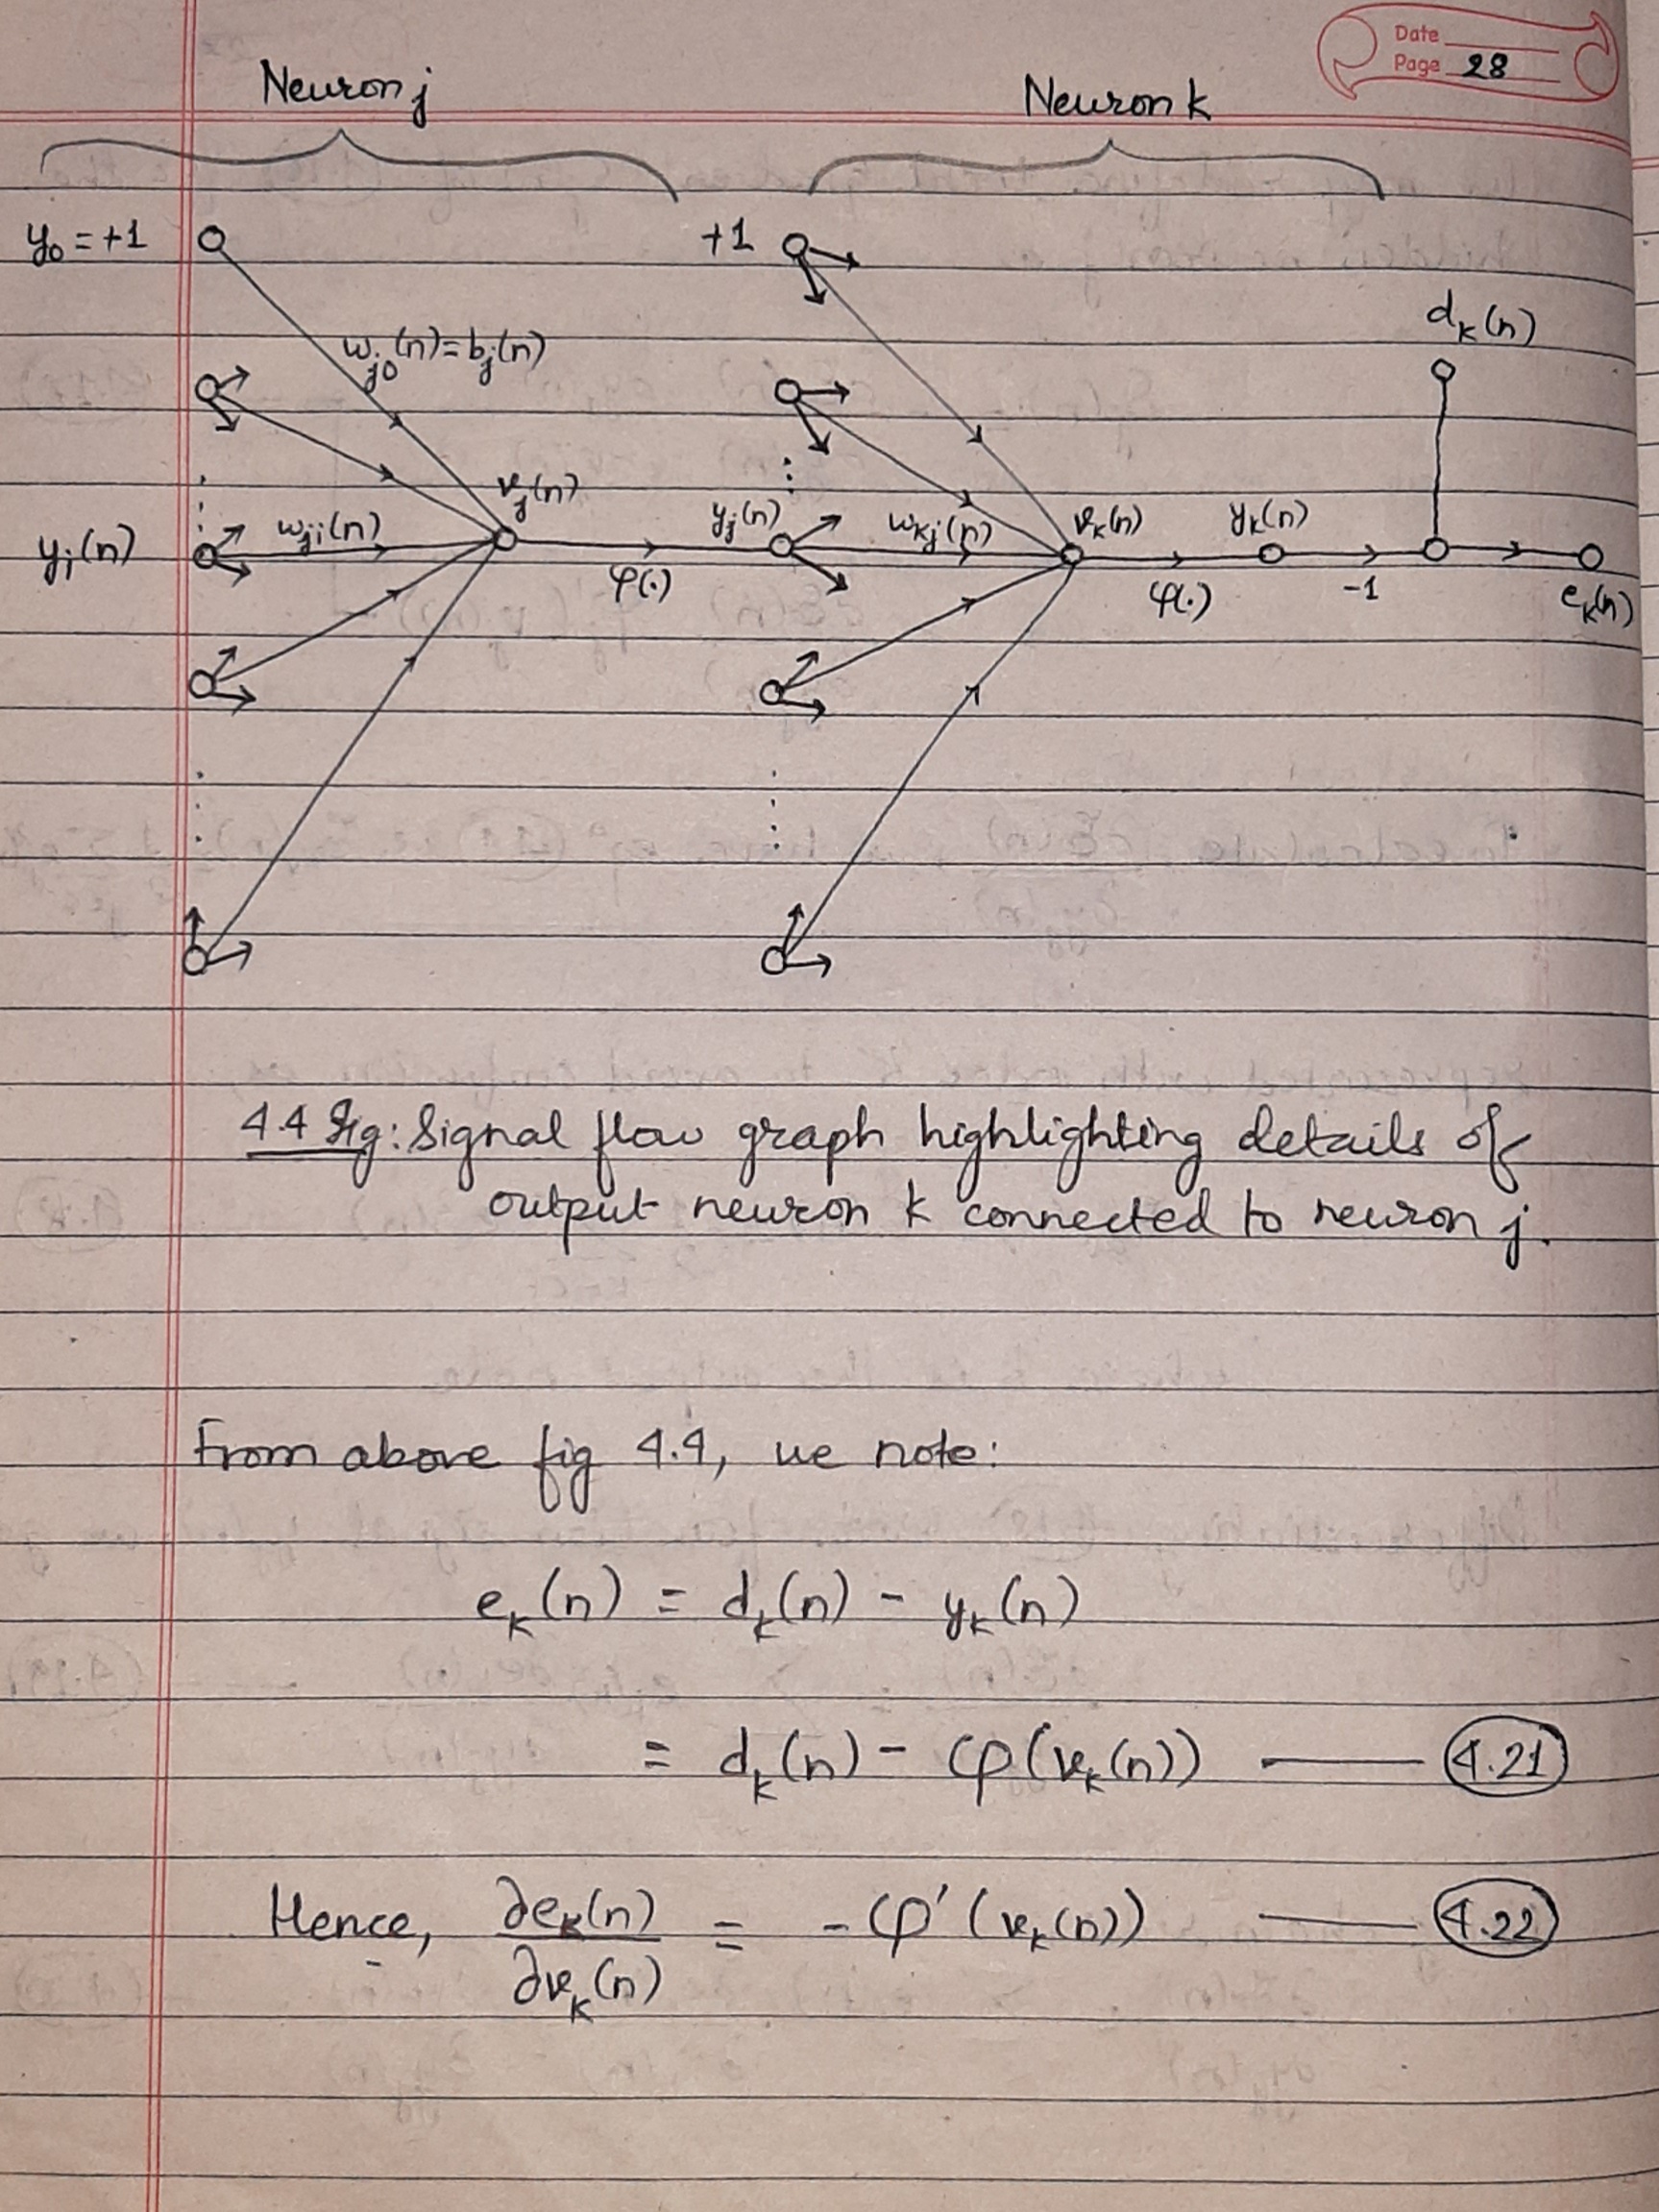 Date
Page 28
Neuron j
Neuron k
y₀ = +1
+1
dₖ(n)
wⱼ₀(n) = bⱼ(n)
vⱼ(n)
yᵢ(n)
wⱼᵢ(n)
φ(.)
yⱼ(n)
wₖⱼ(n)
vₖ(n)
φ(.)
yₖ(n)
-1
eₖ(n)
4.4 Fig: Signal flow graph highlighting details of
output neuron k connected to neuron j.
From above fig 4.4, we note:
eₖ(n) = dₖ(n) - yₖ(n)
= dₖ(n) - φ(vₖ(n)) —— 4.21
Hence, ∂eₖ(n)/∂vₖ(n) = -φ'(vₖ(n)) —— 4.22